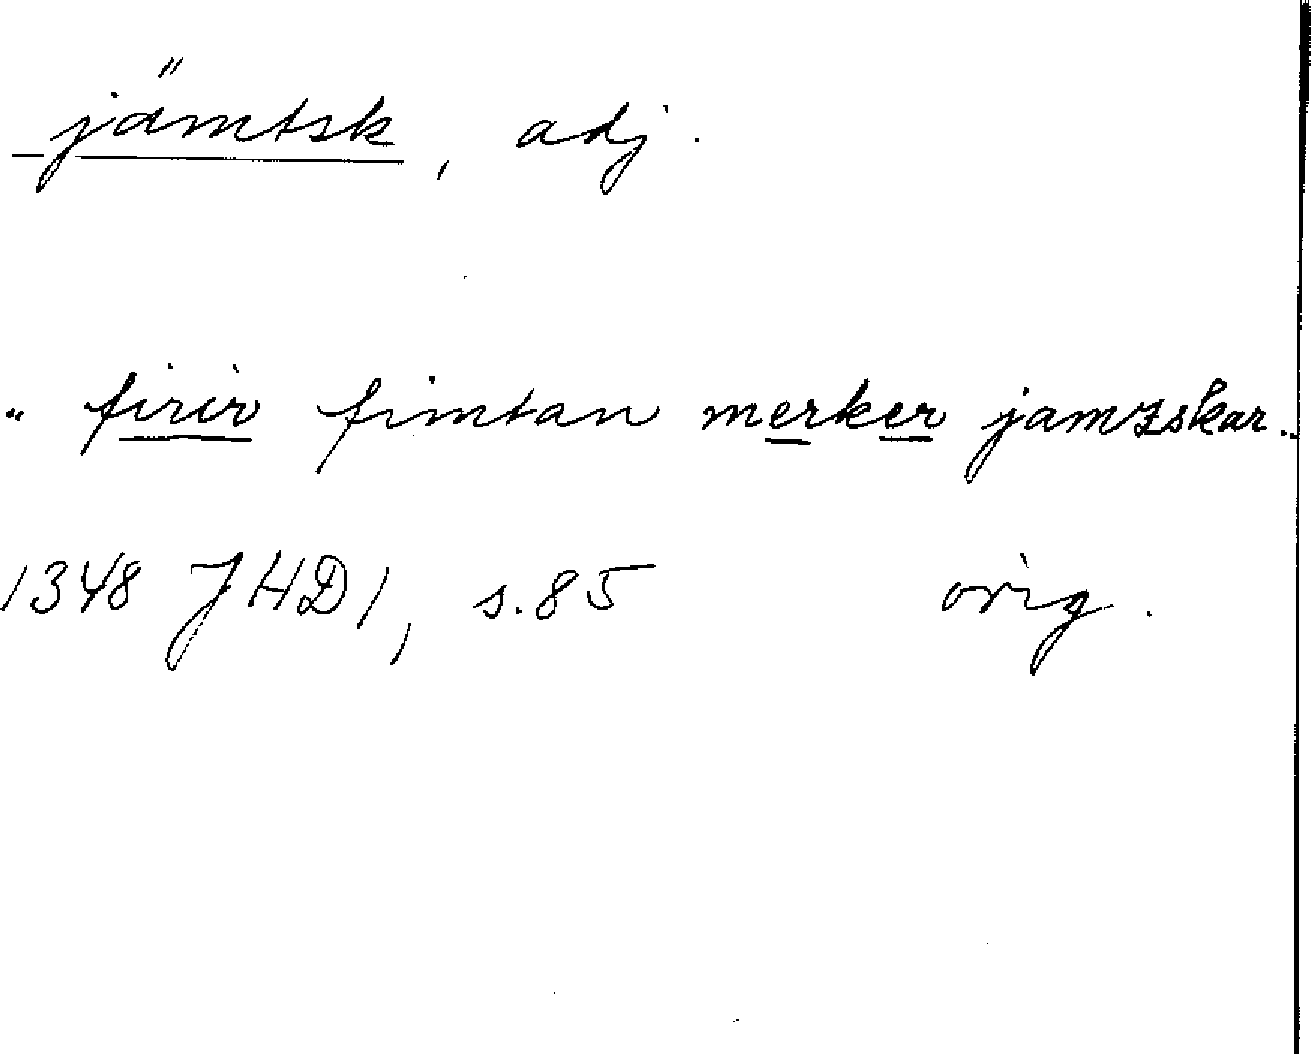 jämtsk, adj.
" firir fimtan merker jamzskar..
1348 JHD1, s. 85 orig.